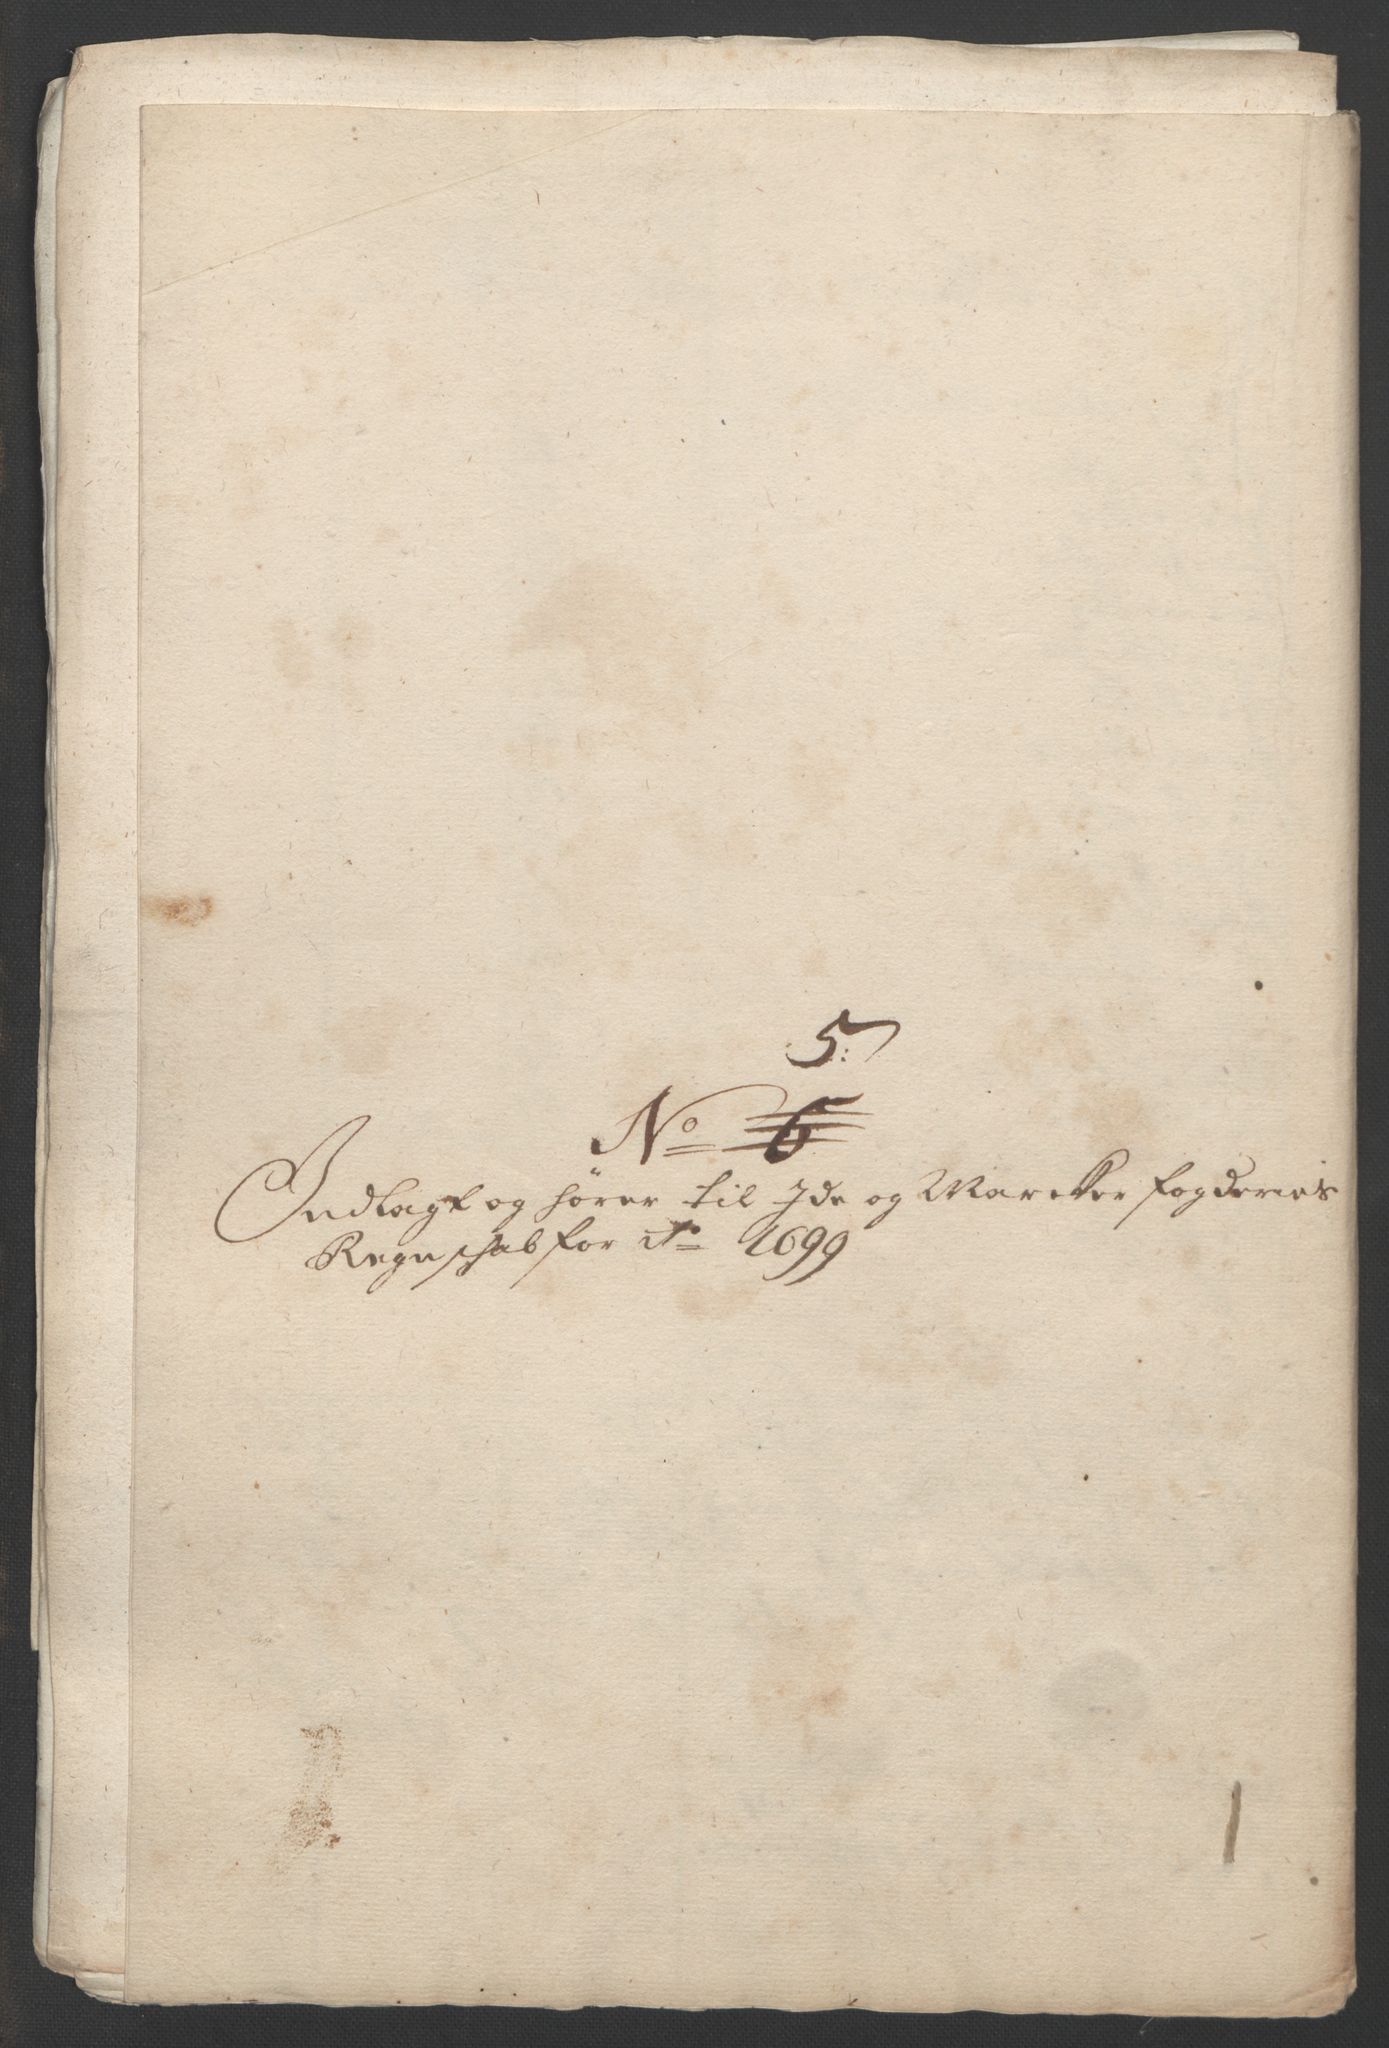 5:
No 6
Indlagt og hører til Ide og Marcker fogderies
Regnschab for Ao 1699